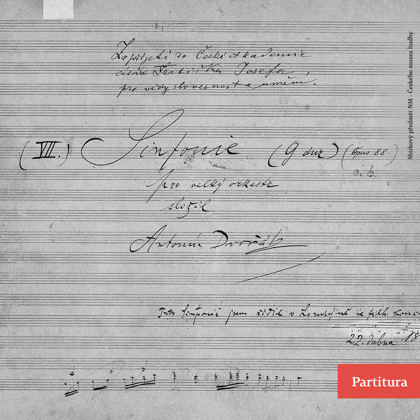 Za přijetí do České Akademie
císaře Františka Josefa
pro vědy slovesnost a umění.
(VII.) Sinfonie (G dur) (Opus 88.)
pro velký orkestr
složil
Antonín Dvořák
Tuto Sinfonii jsem řídil v Londýně
22. dubna 18
Partitura
Sbírkový předmět NM - Českého muzea hudby